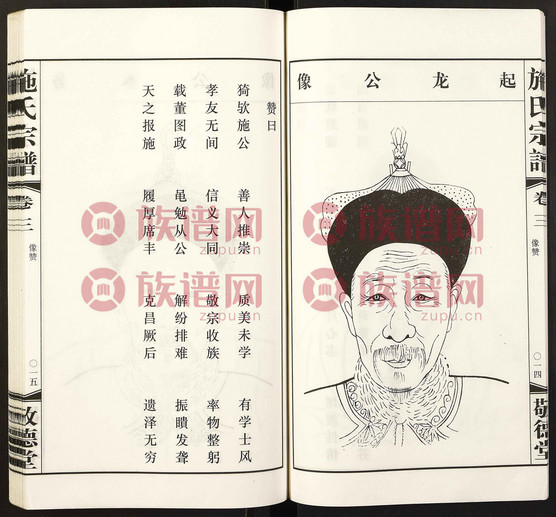 施氏宗谱
卷三
像赞
〇一四
敬德堂
起龙公像
赞曰
猗欤施公 善人推崇 质美未学 有学士风
孝友无间 信义大同 敬宗收族 率物整躬
载董图政 黾勉从公 解纷排难 振聩发聋
天之报施 履厚席丰 克昌厥后 遗泽无穷
施氏宗谱
卷三
像赞
〇一五
敬德堂
族谱网
zupu.cn
族谱网
zupu.cn
族谱网
zupu.cn
族谱网
zupu.cn